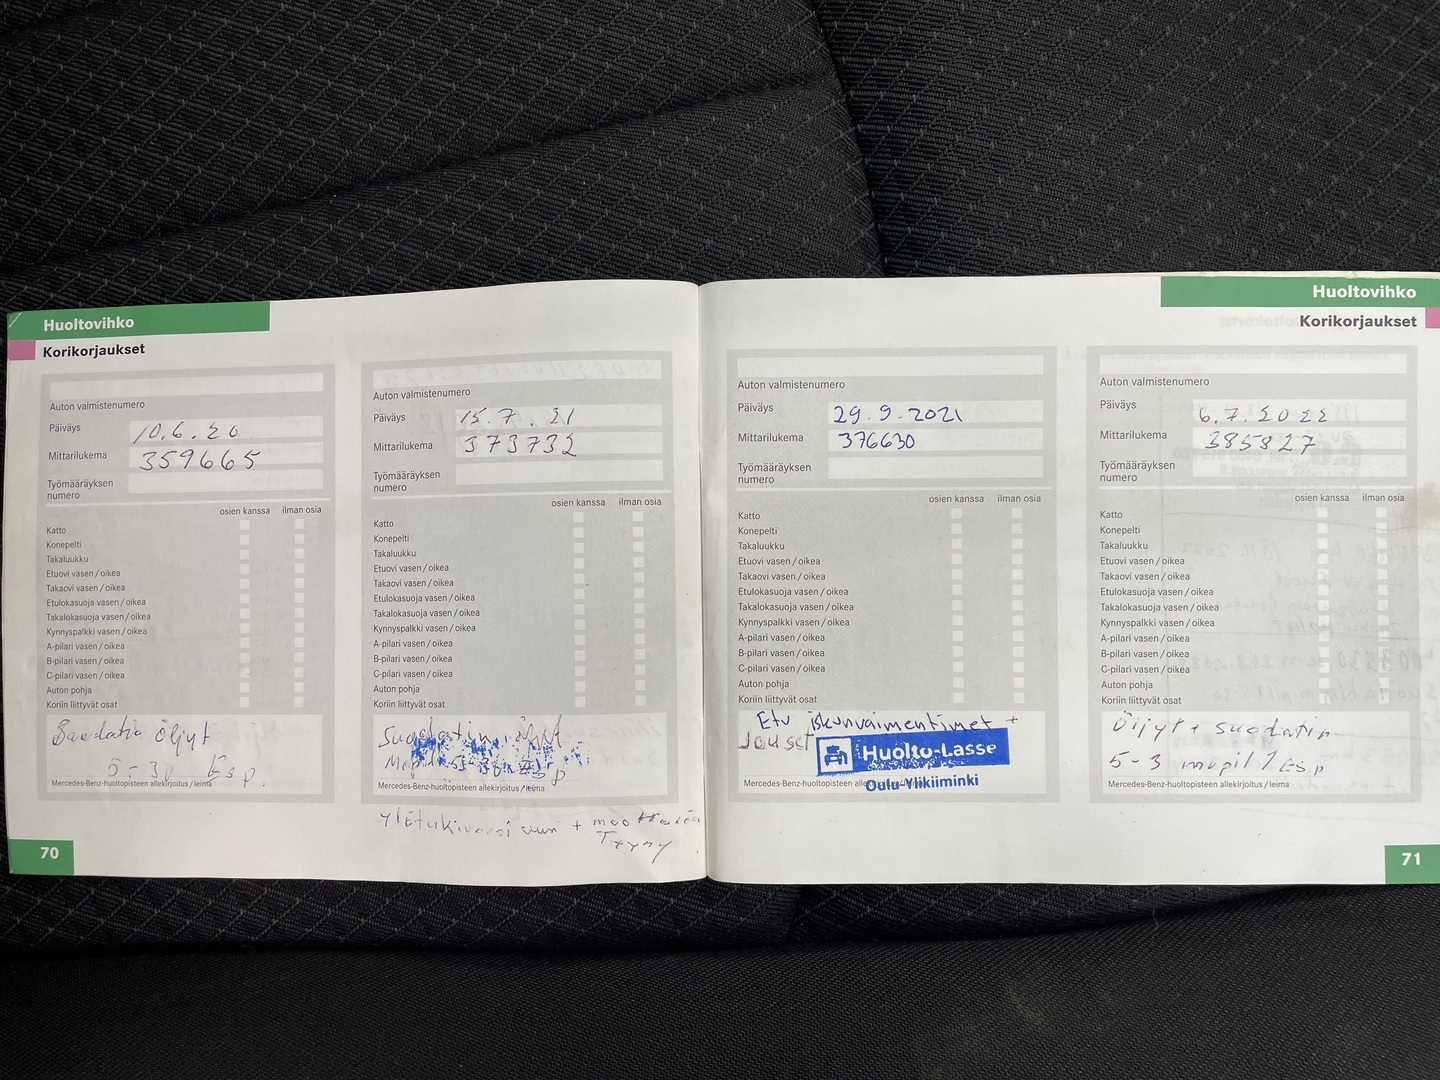 Huoltovihko
Korikorjaukset
Auton valmistenumero
Päiväys 10.6.20
Mittarilukema 359665
Työmääräyksen
numero
osien kanssa ilman osia
Katto
Konepelti
Takaluukku
Etuovi vasen / oikea
Takaovi vasen / oikea
Etulokasuoja vasen / oikea
Takalokasuoja vasen / oikea
Kynnyspalkki vasen / oikea
A-pilari vasen / oikea
B-pilari vasen / oikea
C-pilari vasen / oikea
Auton pohja
Koriin liittyvät osat
öljyt
5-30 Esp.
Mercedes-Benz-huoltopisteen allekirjoitus / leima
70
Auton valmistenumero
Päiväys 15.7.21
Mittarilukema 373732
Työmääräyksen
numero
osien kanssa ilman osia
Katto
Konepelti
Takaluukku
Etuovi vasen / oikea
Takaovi vasen / oikea
Etulokasuoja vasen / oikea
Takalokasuoja vasen / oikea
Kynnyspalkki vasen / oikea
A-pilari vasen / oikea
B-pilari vasen / oikea
C-pilari vasen / oikea
Auton pohja
Koriin liittyvät osat
Suodatin öljyt
5-30 Esp
Mercedes-Benz-huoltopisteen allekirjoitus / leima
+ moottorin
Tyyny
Huoltovihko
Korikorjaukset
Auton valmistenumero
Päiväys 29.9.2021
Mittarilukema 376630
Työmääräyksen
numero
osien kanssa ilman osia
Katto
Konepelti
Takaluukku
Etuovi vasen / oikea
Takaovi vasen / oikea
Etulokasuoja vasen / oikea
Takalokasuoja vasen / oikea
Kynnyspalkki vasen / oikea
A-pilari vasen / oikea
B-pilari vasen / oikea
C-pilari vasen / oikea
Auton pohja
Koriin liittyvät osat
Etu iskunvaimentimet +
Jouset Huolto-Lasse
Oulu-Ylikiiminki
Mercedes-Benz-huoltopisteen allekirjoitus / leima
Auton valmistenumero
Päiväys 6.7.2022
Mittarilukema 385827
Työmääräyksen
numero
osien kanssa ilman osia
Katto
Konepelti
Takaluukku
Etuovi vasen / oikea
Takaovi vasen / oikea
Etulokasuoja vasen / oikea
Takalokasuoja vasen / oikea
Kynnyspalkki vasen / oikea
A-pilari vasen / oikea
B-pilari vasen / oikea
C-pilari vasen / oikea
Auton pohja
Koriin liittyvät osat
Öljyt + suodatin
5-3 mopil 1 Esp
Mercedes-Benz-huoltopisteen allekirjoitus / leima
71